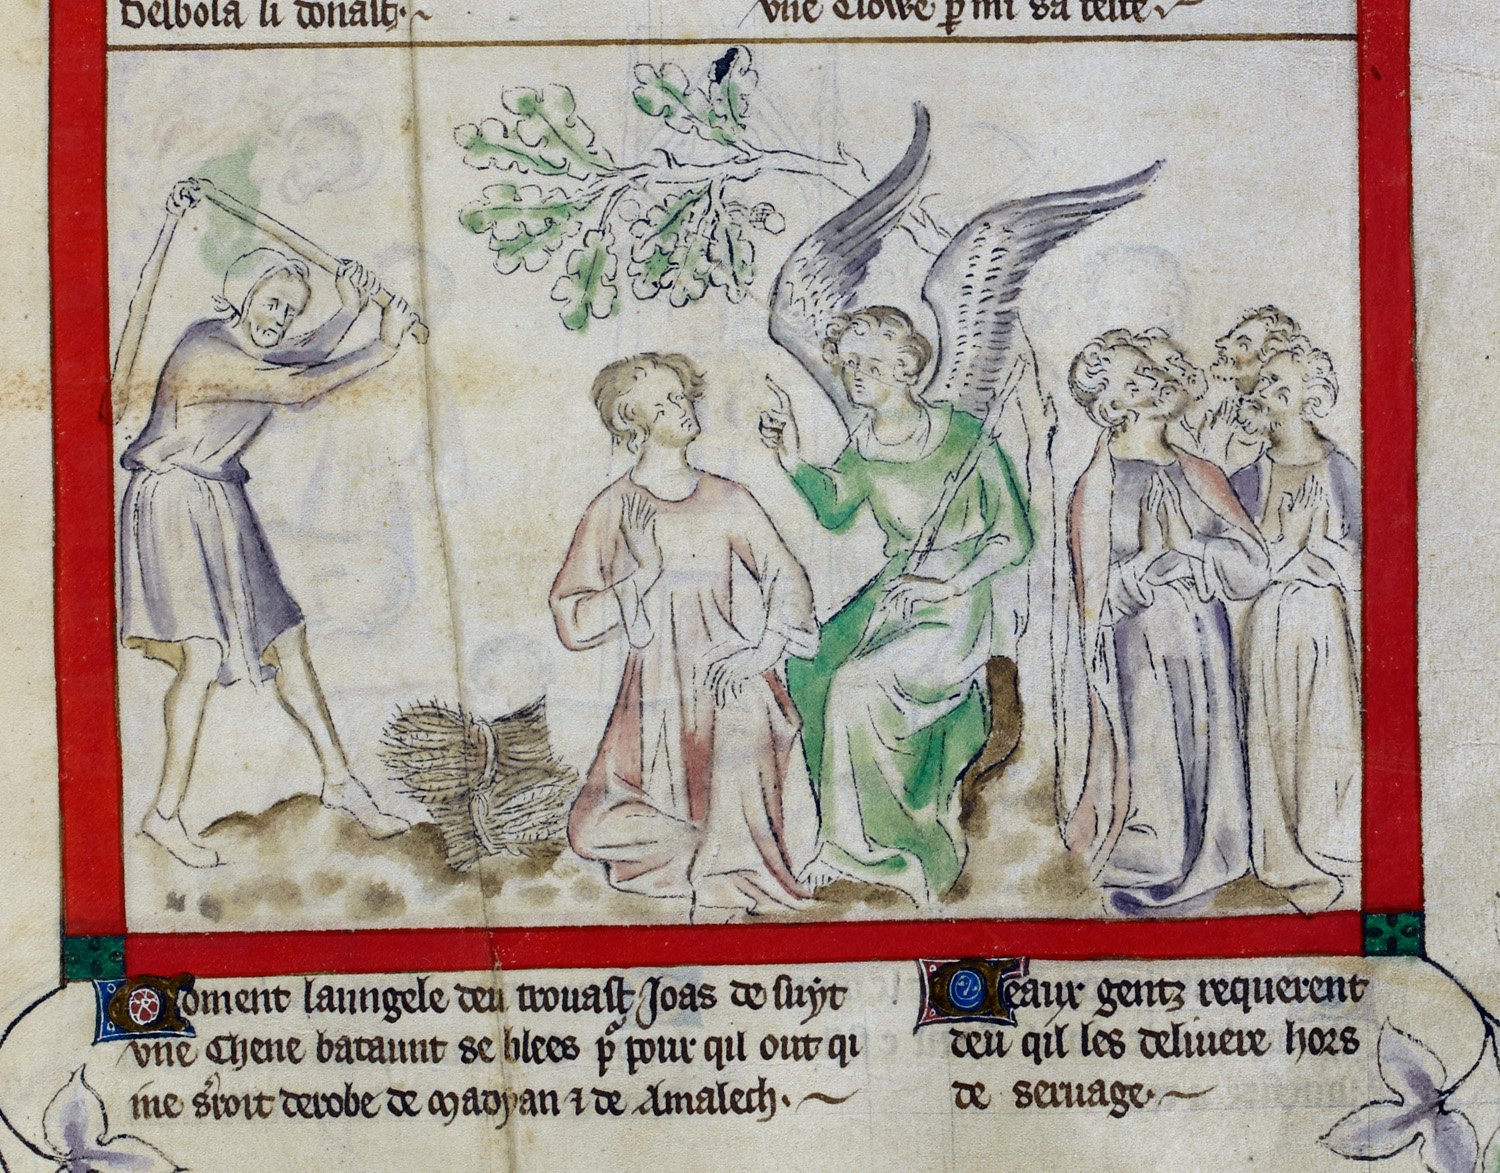 Delbora li donast.
vne Clowe p mi sa teste.
Coment laungele deu trouast Joas de suyt
vne Chene bataunt se blees p pour qil out qi
ine sroit derobe de madyan & de Amalech.
Ceaux gentz requerent
deu qil les deliuere hors
de seruage.